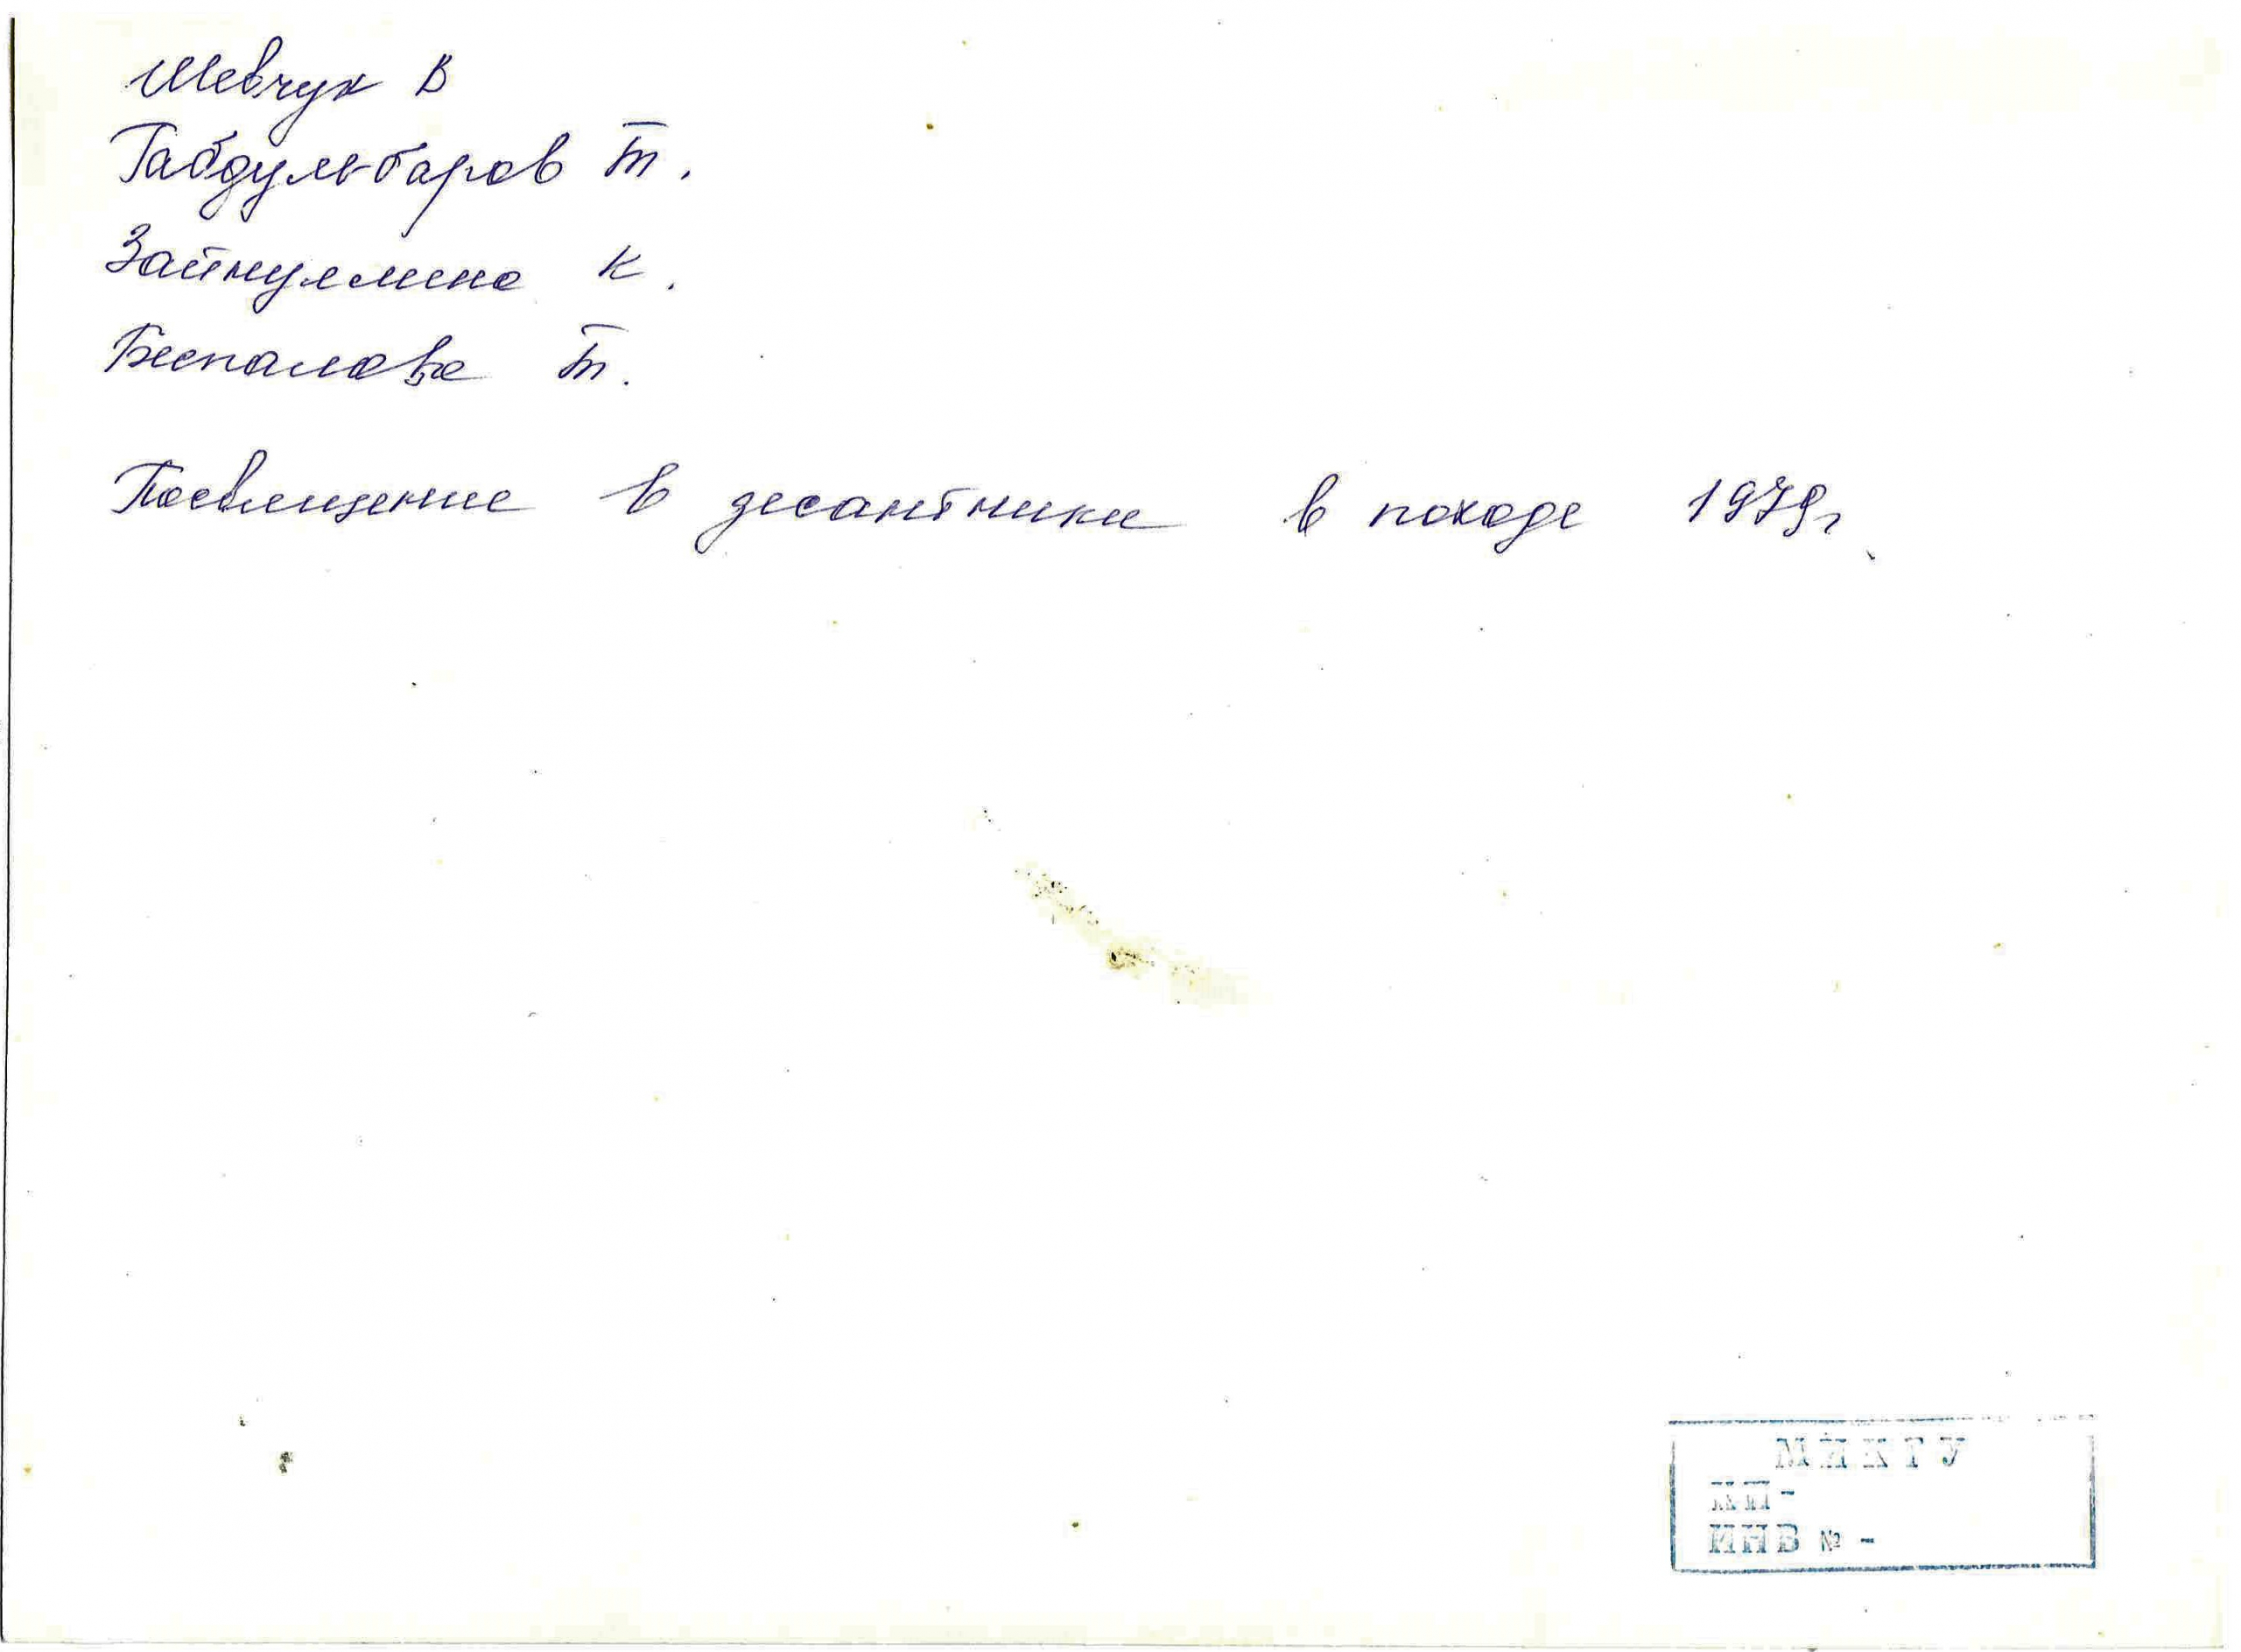 Шевчук В
Габдульбаров Т.
Зайнуллина К.
Беспалова Т.
Посвещение в десантники в походе 1979г.
МИКГУ
КП-
ИНВ № -